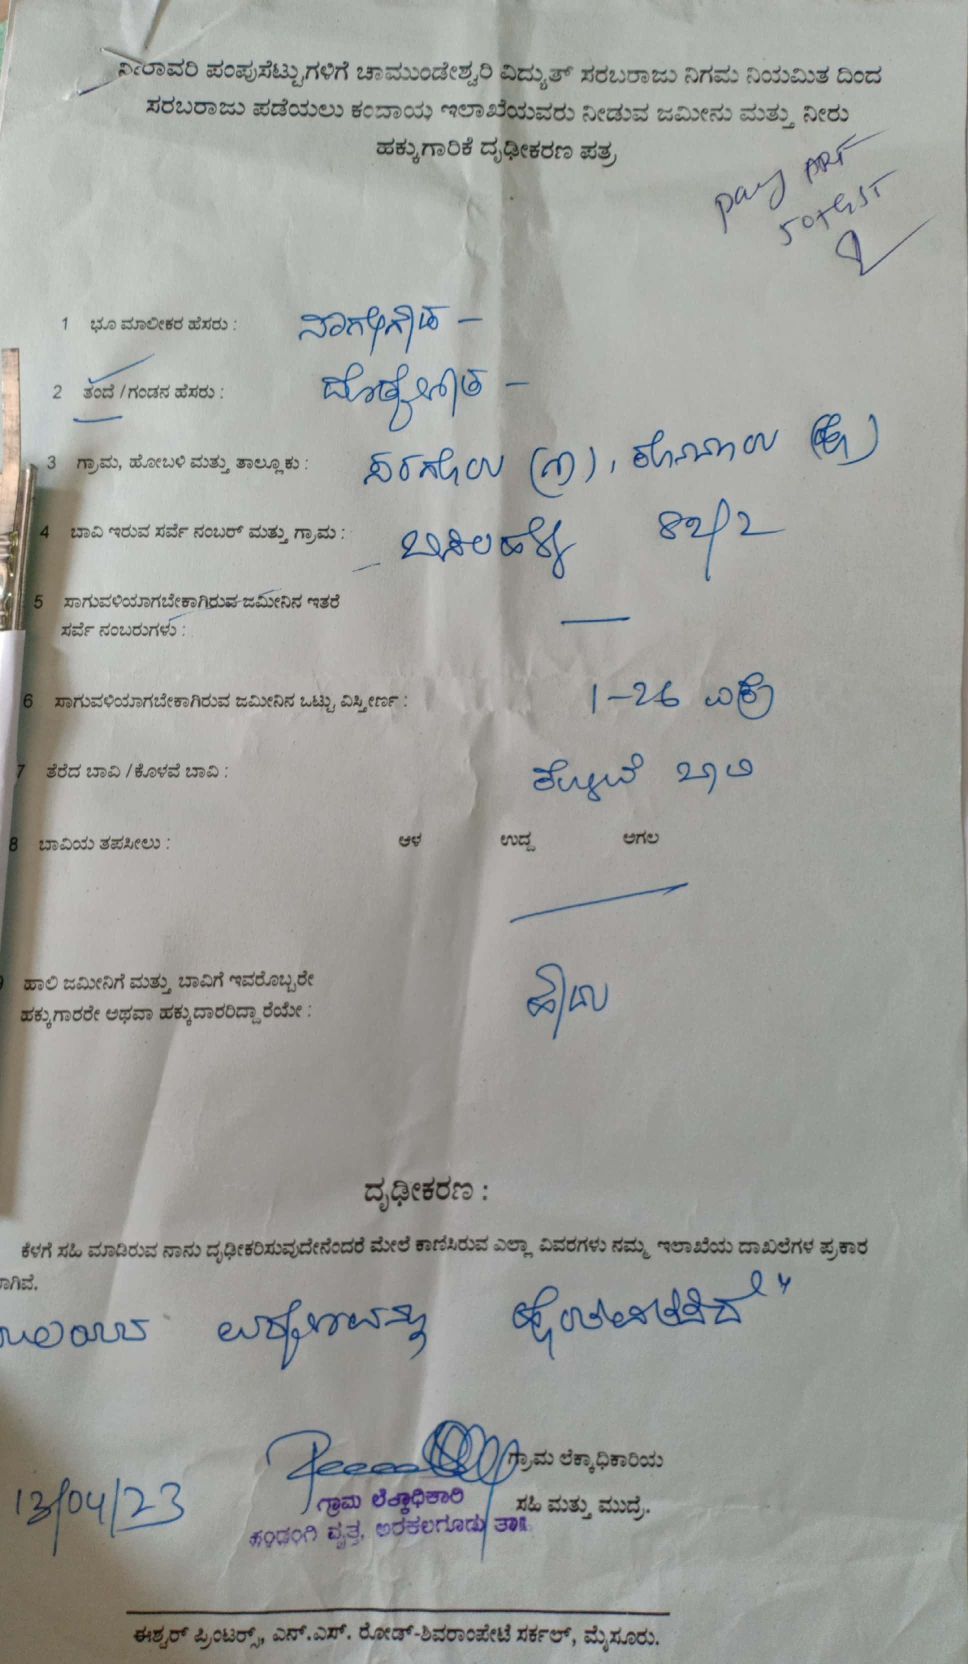 ನೀರಾವರಿ ಪಂಪುಸೆಟ್ಟುಗಳಿಗೆ ಚಾಮುಂಡೇಶ್ವರಿ ವಿದ್ಯುತ್ ಸರಬರಾಜು ನಿಗಮ ನಿಯಮಿತ ದಿಂದ
ಸರಬರಾಜು ಪಡೆಯಲು ಕಂದಾಯ ಇಲಾಖೆಯವರು ನೀಡುವ ಜಮೀನು ಮತ್ತು ನೀರು
ಹಕ್ಕುಗಾರಿಕೆ ದೃಢೀಕರಣ ಪತ್ರ
pay ARF
50+GST
1 ಭೂ ಮಾಲೀಕರ ಹೆಸರು : ನಾಗೇಗೌಡ –
2 ತಂದೆ / ಗಂಡನ ಹೆಸರು : ದೊಡ್ಡೇಗೌಡ –
3 ಗ್ರಾಮ, ಹೋಬಳಿ ಮತ್ತು ತಾಲ್ಲೂಕು : (ಗ್ರಾ), (ಹೋ)
4 ಬಾವಿ ಇರುವ ಸರ್ವೆ ನಂಬರ್ ಮತ್ತು ಗ್ರಾಮ : 82/2
5 ಸಾಗುವಳಿಯಾಗಬೇಕಾಗಿರುವ ಜಮೀನಿನ ಇತರೆ
ಸರ್ವೆ ನಂಬರುಗಳು : —
6 ಸಾಗುವಳಿಯಾಗಬೇಕಾಗಿರುವ ಜಮೀನಿನ ಒಟ್ಟು ವಿಸ್ತೀರ್ಣ : 1-26 ಎಕ್ರೆ
7 ತೆರೆದ ಬಾವಿ / ಕೊಳವೆ ಬಾವಿ : ಕೊಳವೆ ಬಾವಿ
8 ಬಾವಿಯ ತಪಸೀಲು : ಆಳ ಉದ್ದ ಅಗಲ
ಹಾಲಿ ಜಮೀನಿಗೆ ಮತ್ತು ಬಾವಿಗೆ ಇವರೊಬ್ಬರೇ
ಹಕ್ಕುಗಾರರೇ ಅಥವಾ ಹಕ್ಕುದಾರರಿದ್ದಾರೆಯೇ : ಹೌದು
ದೃಢೀಕರಣ :
ಕೆಳಗೆ ಸಹಿ ಮಾಡಿರುವ ನಾನು ದೃಢೀಕರಿಸುವುದೇನೆಂದರೆ ಮೇಲೆ ಕಾಣಿಸಿರುವ ಎಲ್ಲಾ ವಿವರಗಳು ನಮ್ಮ ಇಲಾಖೆಯ ದಾಖಲೆಗಳ ಪ್ರಕಾರ
ಾಗಿವೆ.
ಗ್ರಾಮ ಲೆಕ್ಕಾಧಿಕಾರಿಯ
ಗ್ರಾಮ ಲೆಕ್ಕಾಧಿಕಾರಿ
ಸಹಿ ಮತ್ತು ಮುದ್ರೆ.
13/04/23
ಹಂಡ್ರಂಗಿ ವೃತ್ತ, ಅರಕಲಗೂಡು ತಾ||
ಈಶ್ವರ್ ಪ್ರಿಂಟರ್ಸ್, ಎನ್.ಎಸ್. ರೋಡ್-ಶಿವರಾಂಪೇಟೆ ಸರ್ಕಲ್, ಮೈಸೂರು.